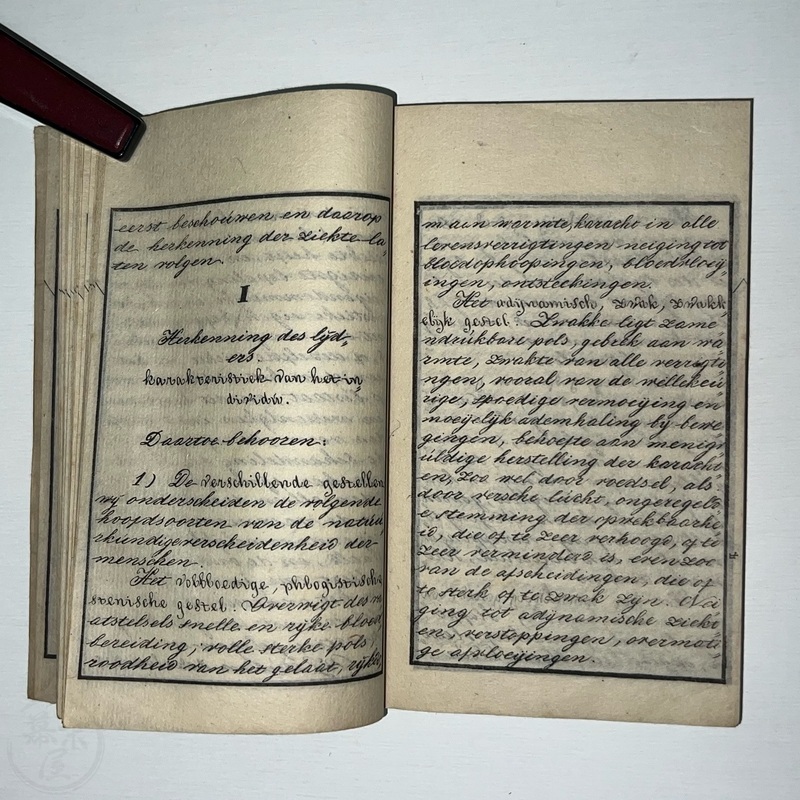 eerst beschouwen en daarop
de herkenning der ziekte la-
ten volgen.
I
Herkenning des lijd-
ers.
karakteristiek van het in-
dividu.
Daartoe behooren:
1) De verschillende gestellen
wij onderscheiden de volgende
hoofdsoorten van de natuu
rkundigeverscheidenheid der
menschen.
Het volbloedige, phlogistische
stenische gestel. Overwigt des v
atstelsels snelle en rijke bloed
bereiding, volle sterke pols
roodheid van het gelaat, rijkdo
m aan warmte, karacho in alle
levensverrigtingen neiging tot
bloedophoopingen, bloedvloey-
ingen, ontsteekingen.
Het adynamisch, zwak, zwakk
elijk gestel. Zwakke ligt zame
ndrukbare pols, gebrek aan wa
rmte, zwakte van alle verrigti
ngen, vooral van de willekeu
rige, spoedige vermoeijing en
moeyelijk ademhaling bij bewe
gingen, behoefte aan menigv
uldige herstelling der karacht
en, zoo wel door voedsel, als
door versche lucht, ongeregeld
e stemming der opwekbaarhe
id, die of te zeer verhoogd, of te
zeer verminderd is, even zoo
van de afscheidingen, die of
te sterk of te zwak zyn. Nei
ging tot adynamische ziekt
en, verstoppingen, overmati
ge afvloeijingen.